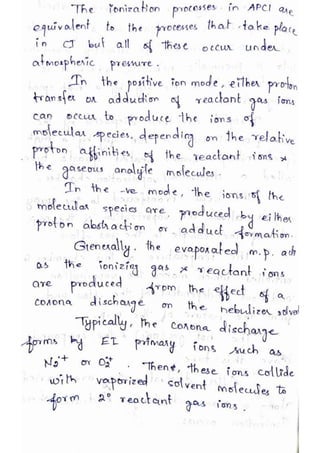 The ionization processes in APCI are
equivalent to the processes that take place
in CI but all of these occur under
atmospheric pressure.
In the positive ion mode, either proton
transfer or adduction of reactant gas ions
can occur to produce the ions of
molecular species, depending on the relative
proton affinities of the reactant ions &
the gaseous analyte molecules.
In the -ve mode, the ions of the
molecular species are produced by either
proton abstraction or adduct formation.
Generally, the evaporated m.p. act
as the ionizing gas & reactant ions
are produced from the effect of a
corona discharge on the nebulizer solvent
Typically, the corona discharge
forms by EI primary ions such as
N2˙+ or O2˙+. Then, these ions collide
with vaporized solvent molecules to
form 2° reactant gas ions.